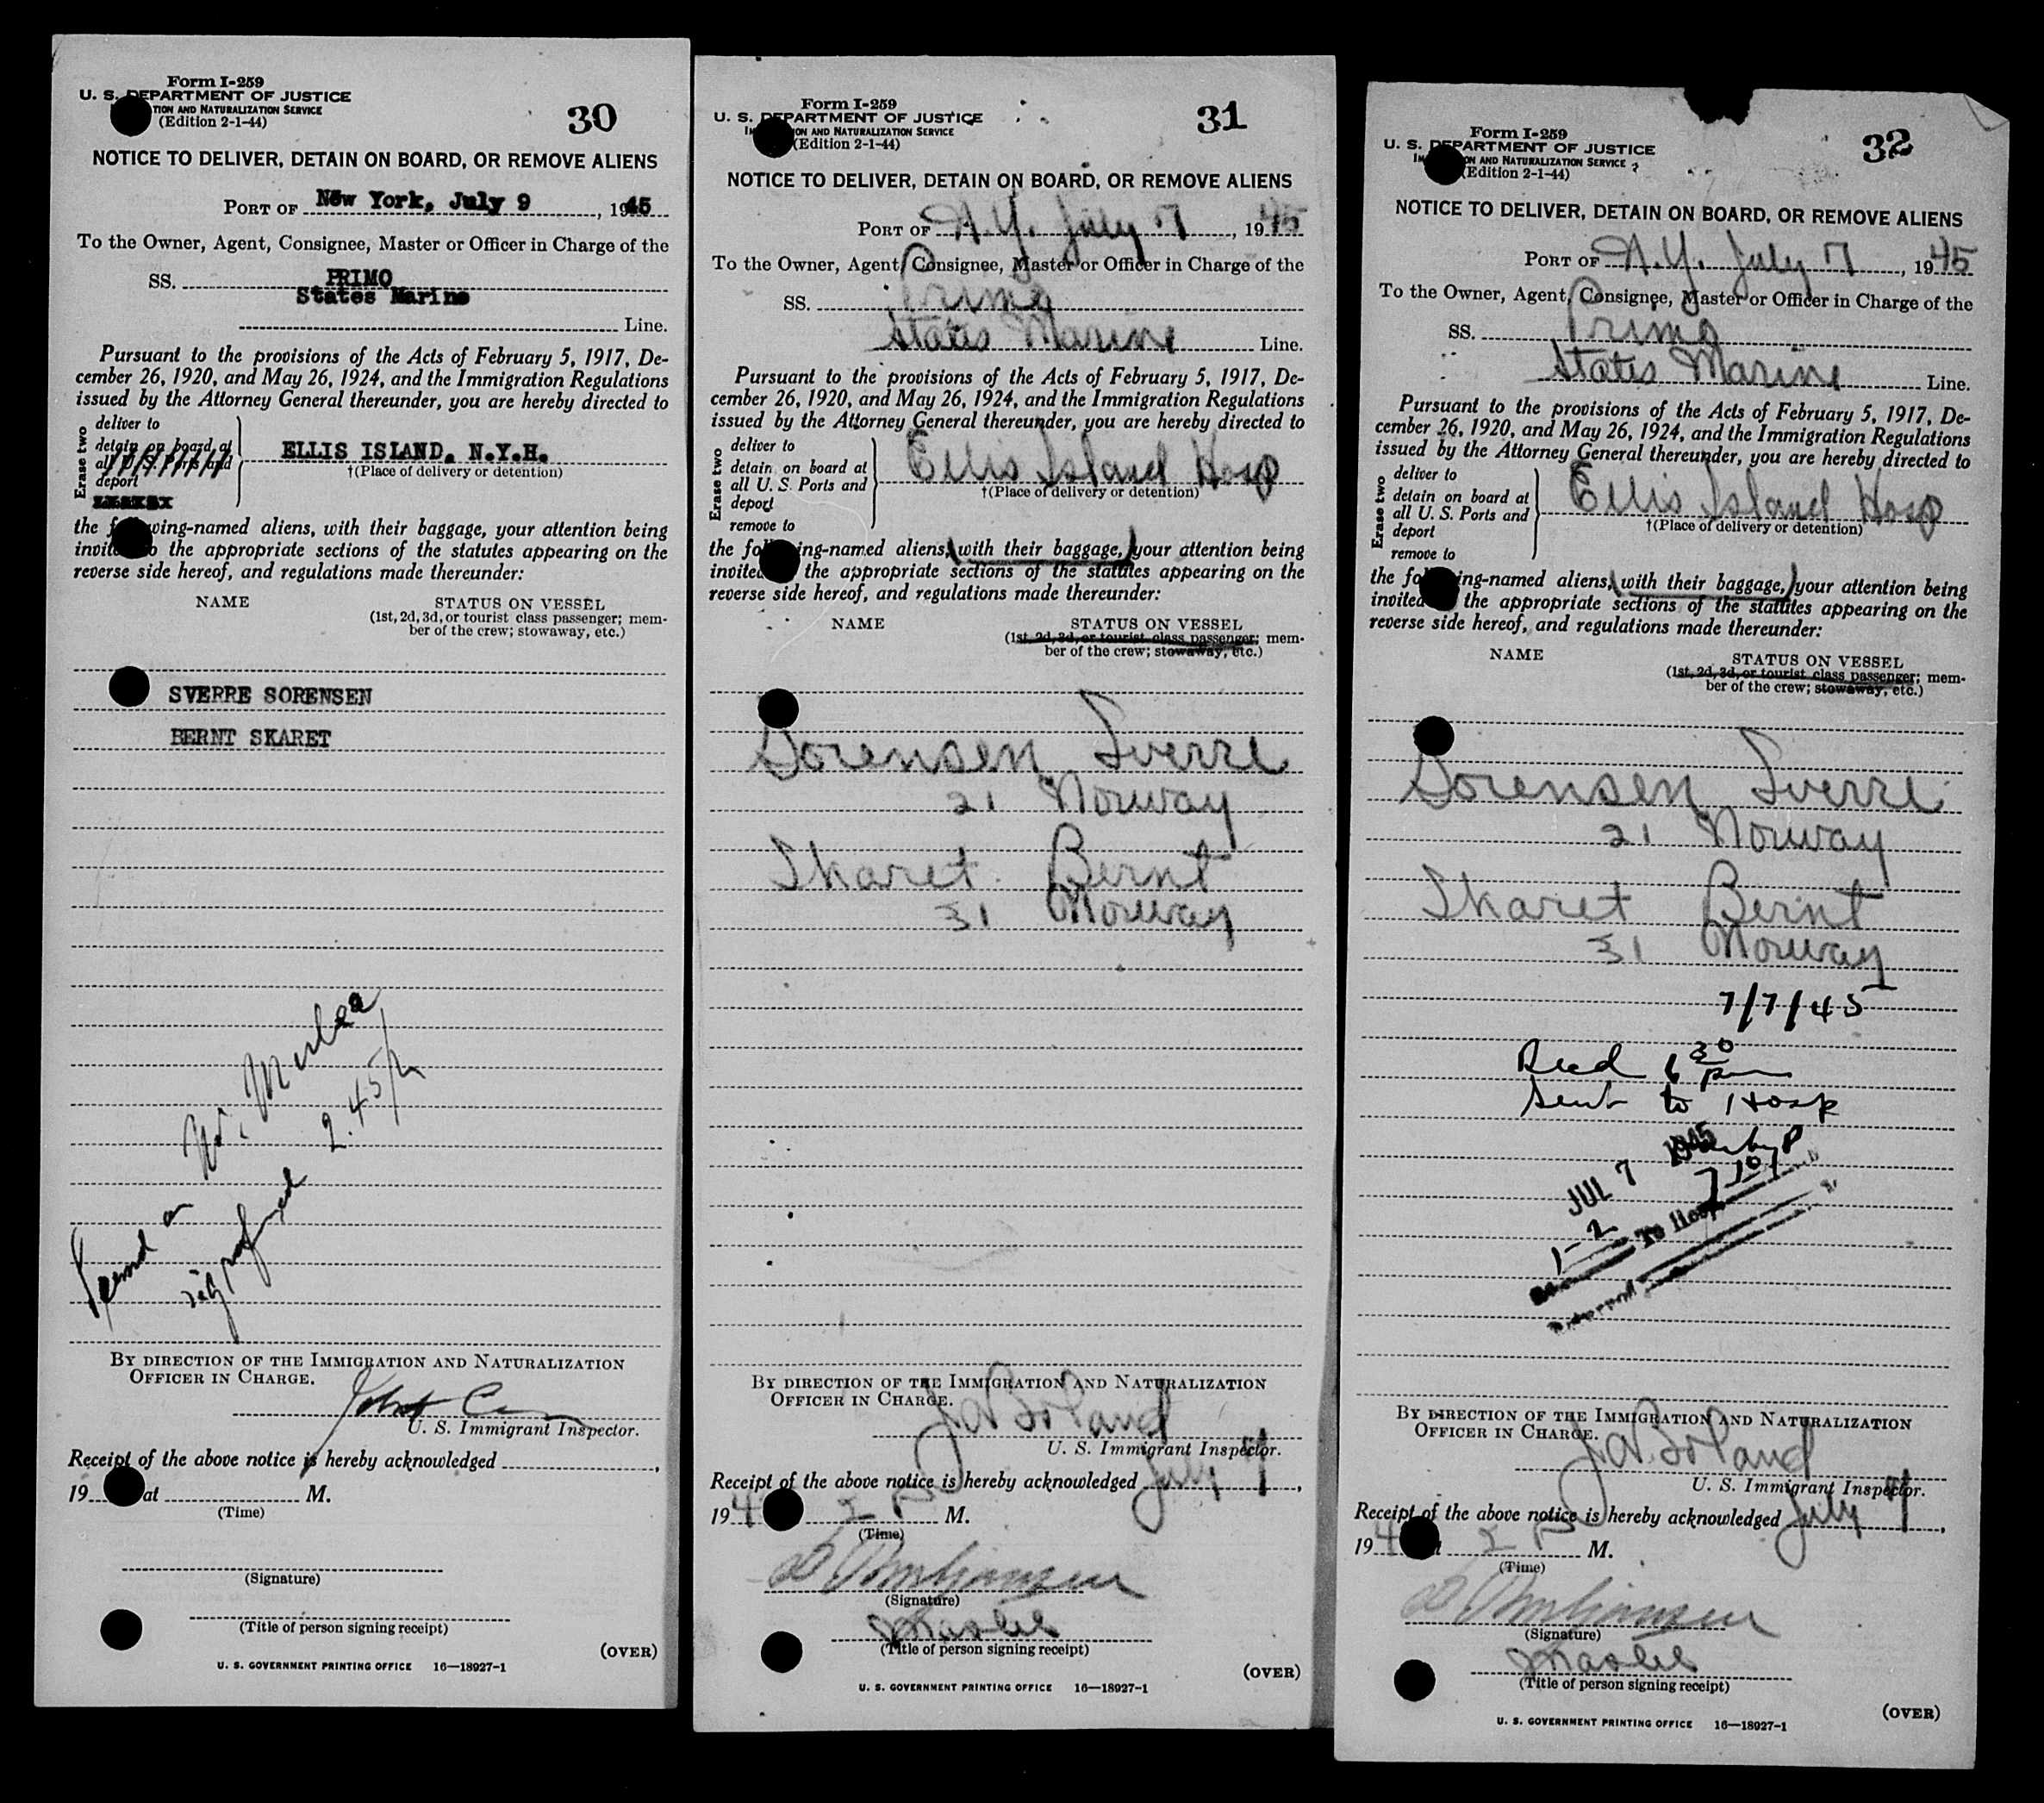 Form I-259
U. S. DEPARTMENT OF JUSTICE
TION AND NATURALIZATION SERVICE
(Edition 2-1-44)
30
NOTICE TO DELIVER, DETAIN ON BOARD, OR REMOVE ALIENS
PORT OF New York, July 9, 1945
To the Owner, Agent, Consignee, Master or Officer in Charge of the
SS. PRIMO
States Marine
Line.
Pursuant to the provisions of the Acts of February 5, 1917, De-
cember 26, 1920, and May 26, 1924, and the Immigration Regulations
issued by the Attorney General thereunder, you are hereby directed to
Erase two
deliver to
detain on board at
all U. S. Ports and
deport
ELLIS ISLAND, N.Y.H.
†(Place of delivery or detention)
the following-named aliens, with their baggage, your attention being
invited to the appropriate sections of the statutes appearing on the
reverse side hereof, and regulations made thereunder:
NAME STATUS ON VESSEL
(1st, 2d, 3d, or tourist class passenger; mem-
ber of the crew; stowaway, etc.)
SVERRE SORENSEN
BERNT SKARET
2.45
BY DIRECTION OF THE IMMIGRATION AND NATURALIZATION
OFFICER IN CHARGE.
U. S. Immigrant Inspector.
Receipt of the above notice is hereby acknowledged
19 at M.
(Time)
(Signature)
(Title of person signing receipt)
(OVER)
U. S. GOVERNMENT PRINTING OFFICE 16—18927-1
Form I-259
U. S. DEPARTMENT OF JUSTICE
ON AND NATURALIZATION SERVICE
(Edition 2-1-44)
31
NOTICE TO DELIVER, DETAIN ON BOARD, OR REMOVE ALIENS
PORT OF N.Y. July 7, 1945
To the Owner, Agent, Consignee, Master or Officer in Charge of the
SS. Primo
States Marine Line.
Pursuant to the provisions of the Acts of February 5, 1917, De-
cember 26, 1920, and May 26, 1924, and the Immigration Regulations
issued by the Attorney General thereunder, you are hereby directed to
Erase two
deliver to
detain on board at
all U. S. Ports and
deport
remove to
Ellis Island Hosp
†(Place of delivery or detention)
the following-named aliens, (with their baggage,) your attention being
invited the appropriate sections of the statutes appearing on the
reverse side hereof, and regulations made thereunder:
NAME STATUS ON VESSEL
(1st, 2d, 3d, or tourist class passenger; mem-
ber of the crew; stowaway, etc.)
Sorensen Sverre
21 Norway
Skaret Bernt
31 Norway
BY DIRECTION OF THE IMMIGRATION AND NATURALIZATION
OFFICER IN CHARGE.
U. S. Immigrant Inspector.
Receipt of the above notice is hereby acknowledged July 7,
194 2 P M.
(Time)
(Signature)
(Title of person signing receipt)
(OVER)
U. S. GOVERNMENT PRINTING OFFICE 16—18927-1
Form I-259
U. S. DEPARTMENT OF JUSTICE
ON AND NATURALIZATION SERVICE
(Edition 2-1-44)
32
NOTICE TO DELIVER, DETAIN ON BOARD, OR REMOVE ALIENS
PORT OF N.Y. July 7, 1945
To the Owner, Agent, Consignee, Master or Officer in Charge of the
SS. Primo
States Marine Line.
Pursuant to the provisions of the Acts of February 5, 1917, De-
cember 26, 1920, and May 26, 1924, and the Immigration Regulations
issued by the Attorney General thereunder, you are hereby directed to
Erase two
deliver to
detain on board at
all U. S. Ports and
deport
remove to
Ellis Island Hosp
†(Place of delivery or detention)
the following-named aliens, (with their baggage,) your attention being
invited the appropriate sections of the statutes appearing on the
reverse side hereof, and regulations made thereunder:
NAME STATUS ON VESSEL
(1st, 2d, 3d, or tourist class passenger; mem-
ber of the crew; stowaway, etc.)
Sorensen Sverre
21 Norway
Skaret Bernt
31 Norway
7/7/45
Recd 6 30 pm
Sent to Hosp
JUL 7 1945
1-2 To Hosp
BY DIRECTION OF THE IMMIGRATION AND NATURALIZATION
OFFICER IN CHARGE.
U. S. Immigrant Inspector.
Receipt of the above notice is hereby acknowledged July 7,
194 2 P M.
(Time)
(Signature)
(Title of person signing receipt)
(OVER)
U. S. GOVERNMENT PRINTING OFFICE 16—18927-1